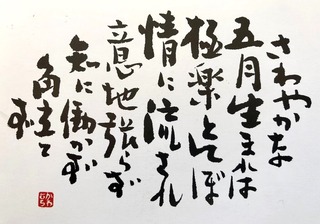 さわやかな
五月生まれは
極楽とんぼ
情に流され
意地張らず
知に働かず
角立て
ず